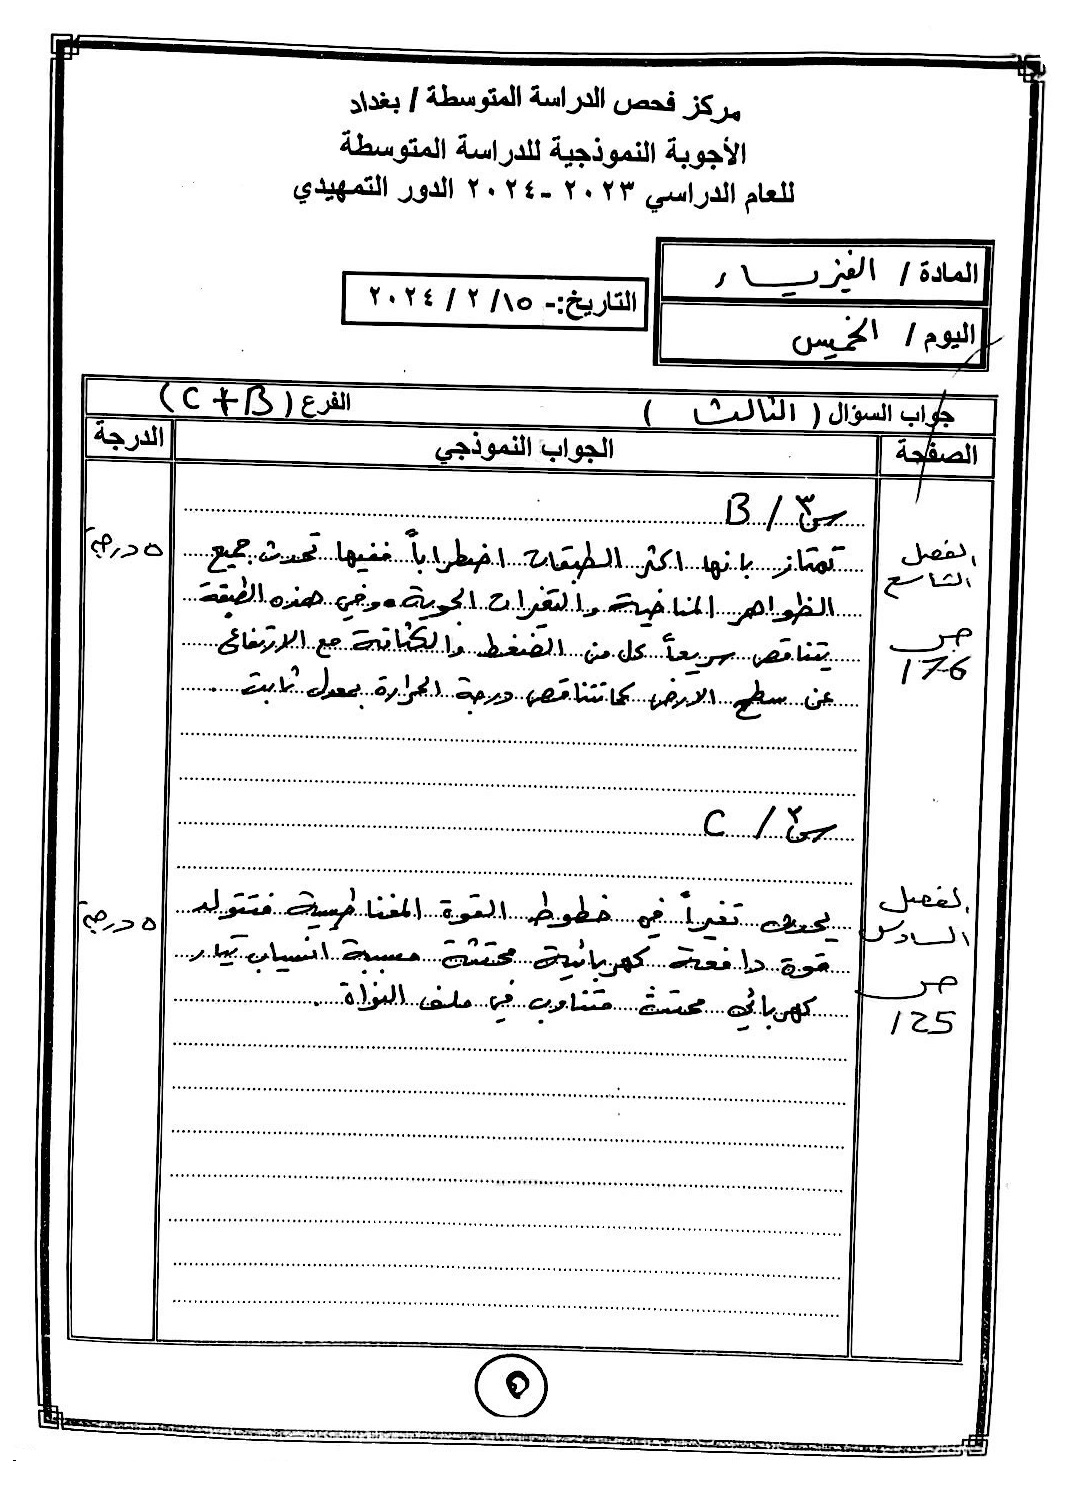 مركز فحص الدراسة المتوسطة / بغداد
الأجوبة النموذجية للدراسة المتوسطة
للعام الدراسي ٢٠٢٣ -٢٠٢٤ الدور التمهيدي
المادة / الفيزياء
التاريخ:- ١٥ /٢ / ٢٠٢٤
اليوم / الخميس
جواب السؤال ( الثالث ) الفرع ( C + B )
الصفحة الجواب النموذجي الدرجة
س٣ / B
الفصل
التاسع
ص
176
تمتاز بانها اكثر الطبقات اضطراباً ففيها تحدث جميع
الظواهر المناخية والتغيرات الجوية. وفي هذه الطبقة
يتناقص سريعاً كل من الضغط والكثافة مع الارتفاع
عن سطح الارض كما تتناقص درجة الحرارة بمعدل ثابت.
٥ درجة
س٣ / C
الفصل
السادس
ص
125
يحدث تغيراً في خطوط القوة المغناطيسية فتتولد
قوة دافعة كهربائية محتثة مسببة انسياب تيار
كهربائي محتث متناوب في ملف النواة.
٥ درجة
٥